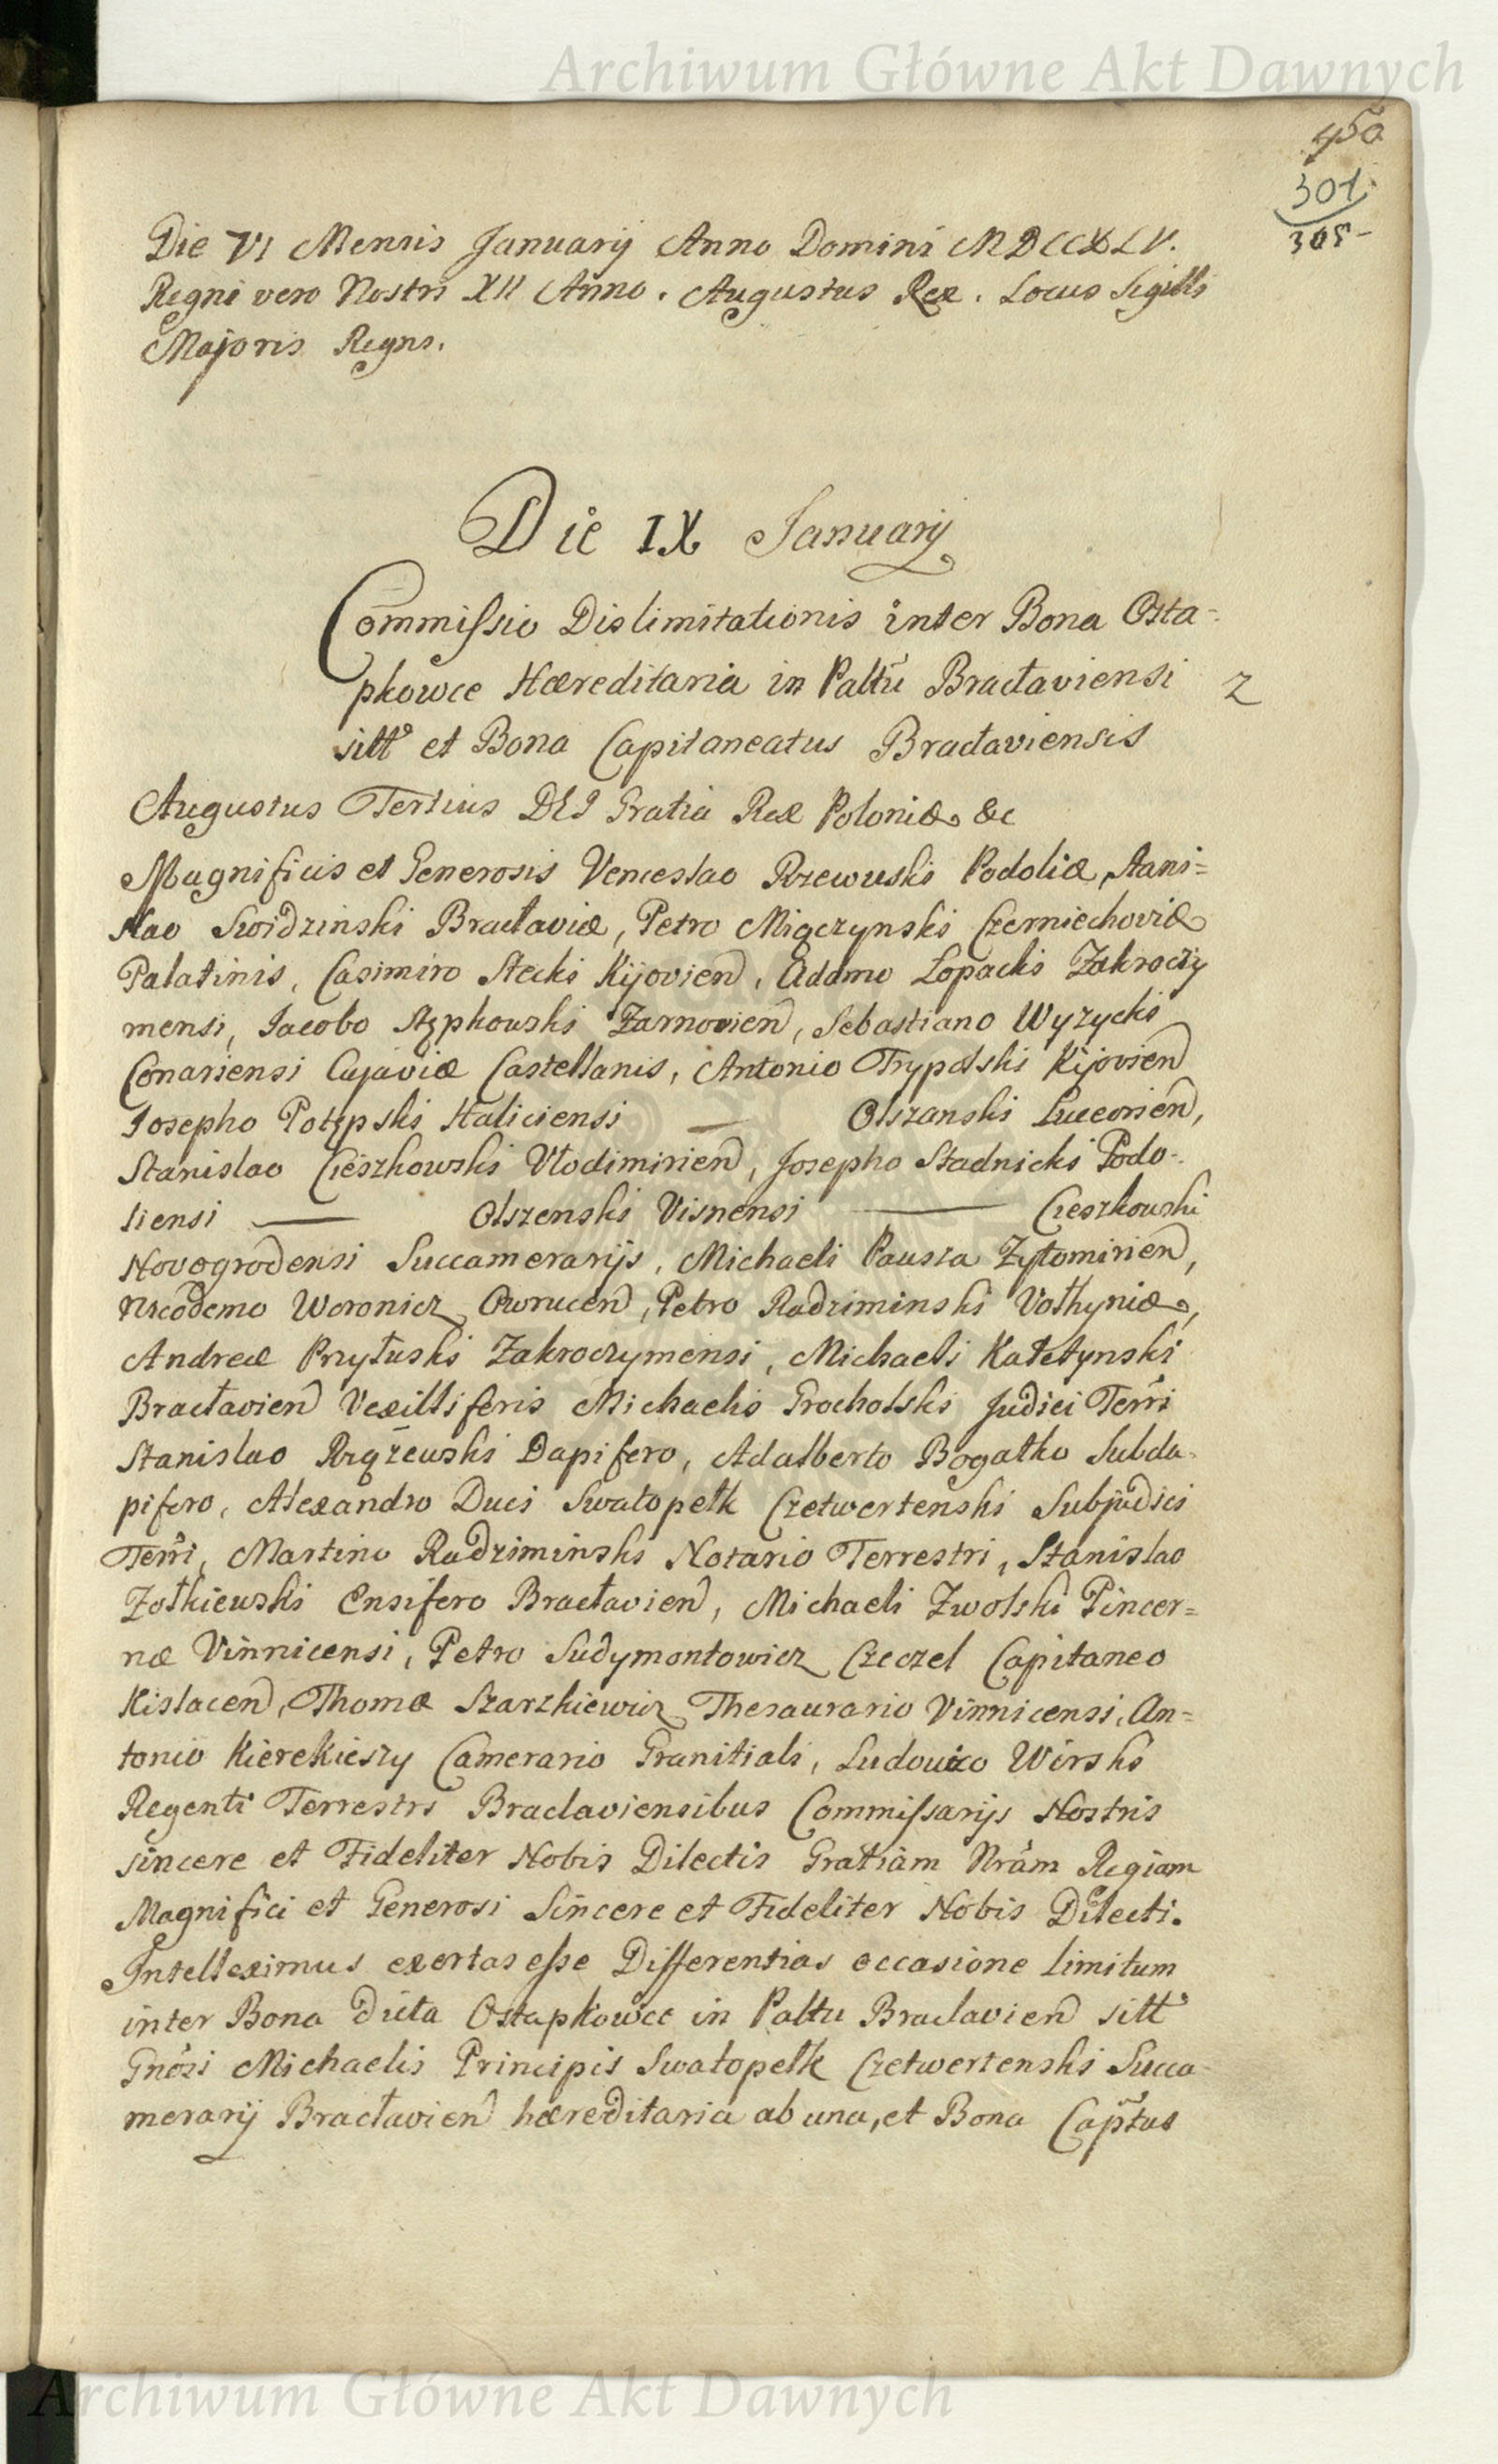 Archiwum Główne Akt Dawnych
450
301
305-
Die VI Mensis Januarij Anno Domini MDCCXLV.
Regni vero Nostri XII Anno. Augustus Rex. Locus Sigilli
Majoris Regni.
Die IX Januarij
Commissio Dislimitationis inter Bona Osta=
pkowce Hæreditaria in Palttũ Bracłaviensi 2
sitt et Bona Capitaneatus Bracłaviensis
Augustus Tertius DEI Gratia Rex Poloniæ &c
Magnificis et Generosis Venceslao Rzewuski Podoliæ, Stani=
slao Swidzinski Bracłaviæ, Petro Miączynski Czerniechoviæ
Palatinis, Casimiro Stecki Kijovien, Adamo Lopacki Zakroczy
mensi, Jacobo Stępkowski Zarnovien, Sebastiano Wyzycki
Conariensi Cujaviæ Castellanis, Antonio Trypolski Kijovien
Josepho Potępski Haliciensi — Olszanski Luceorien,
Stanislao Cieszkowski Vlodimirien, Josepho Stadnicki Podo=
liensi — Olszenski Visnensi — Cieszkowski
Novogrodensi Succamerarijs, Michaeli Pausza Zytomirien,
Nicodemo Woronicz Owrucen, Petro Radziminski Volhyniæ,
Andreæ Przyłuski Zakroczymensi, Michaeli Kaletynski
Bracłavien Vexilliferis Michaeli Grocholski Judici Terri
Stanislao Rzążewski Dapifero, Adalberto Bogatko Subda=
pifero, Alexandro Duci Swatopełk Czetwertenski Subjudici
Terri, Martino Radziminski Notario Terrestri, Stanislao
Zołkiewski Ensifero Bracłavien, Michaeli Zwolski Pincer=
næ Vinnicensi, Petro Sudymontowicz Czeczel Capitaneo
Kislacen, Thomæ Szarzkiewicz Thesaurario Vinnicensi, An=
tonio Kierekieszy Camerario Granitiali, Ludovico Wirski
Regenti Terrestri Braclaviensibus Commissarijs Nostris
sincere et Fideliter Nobis Dilectis Gratiam Nram Regiam
Magnifici et Generosi Sincere et Fideliter Nobis Dilecti.
Intelleximus exortas esse Differentias occasione limitum
inter Bona dicta Ostapkowce in Palttu Braclavien sitt
Gnosi Michaelis Principis Swatopełk Czetwertenski Succa=
merarij Bracłavien hæreditaria ab una, et Bona Capttus
Archiwum Główne Akt Dawnych